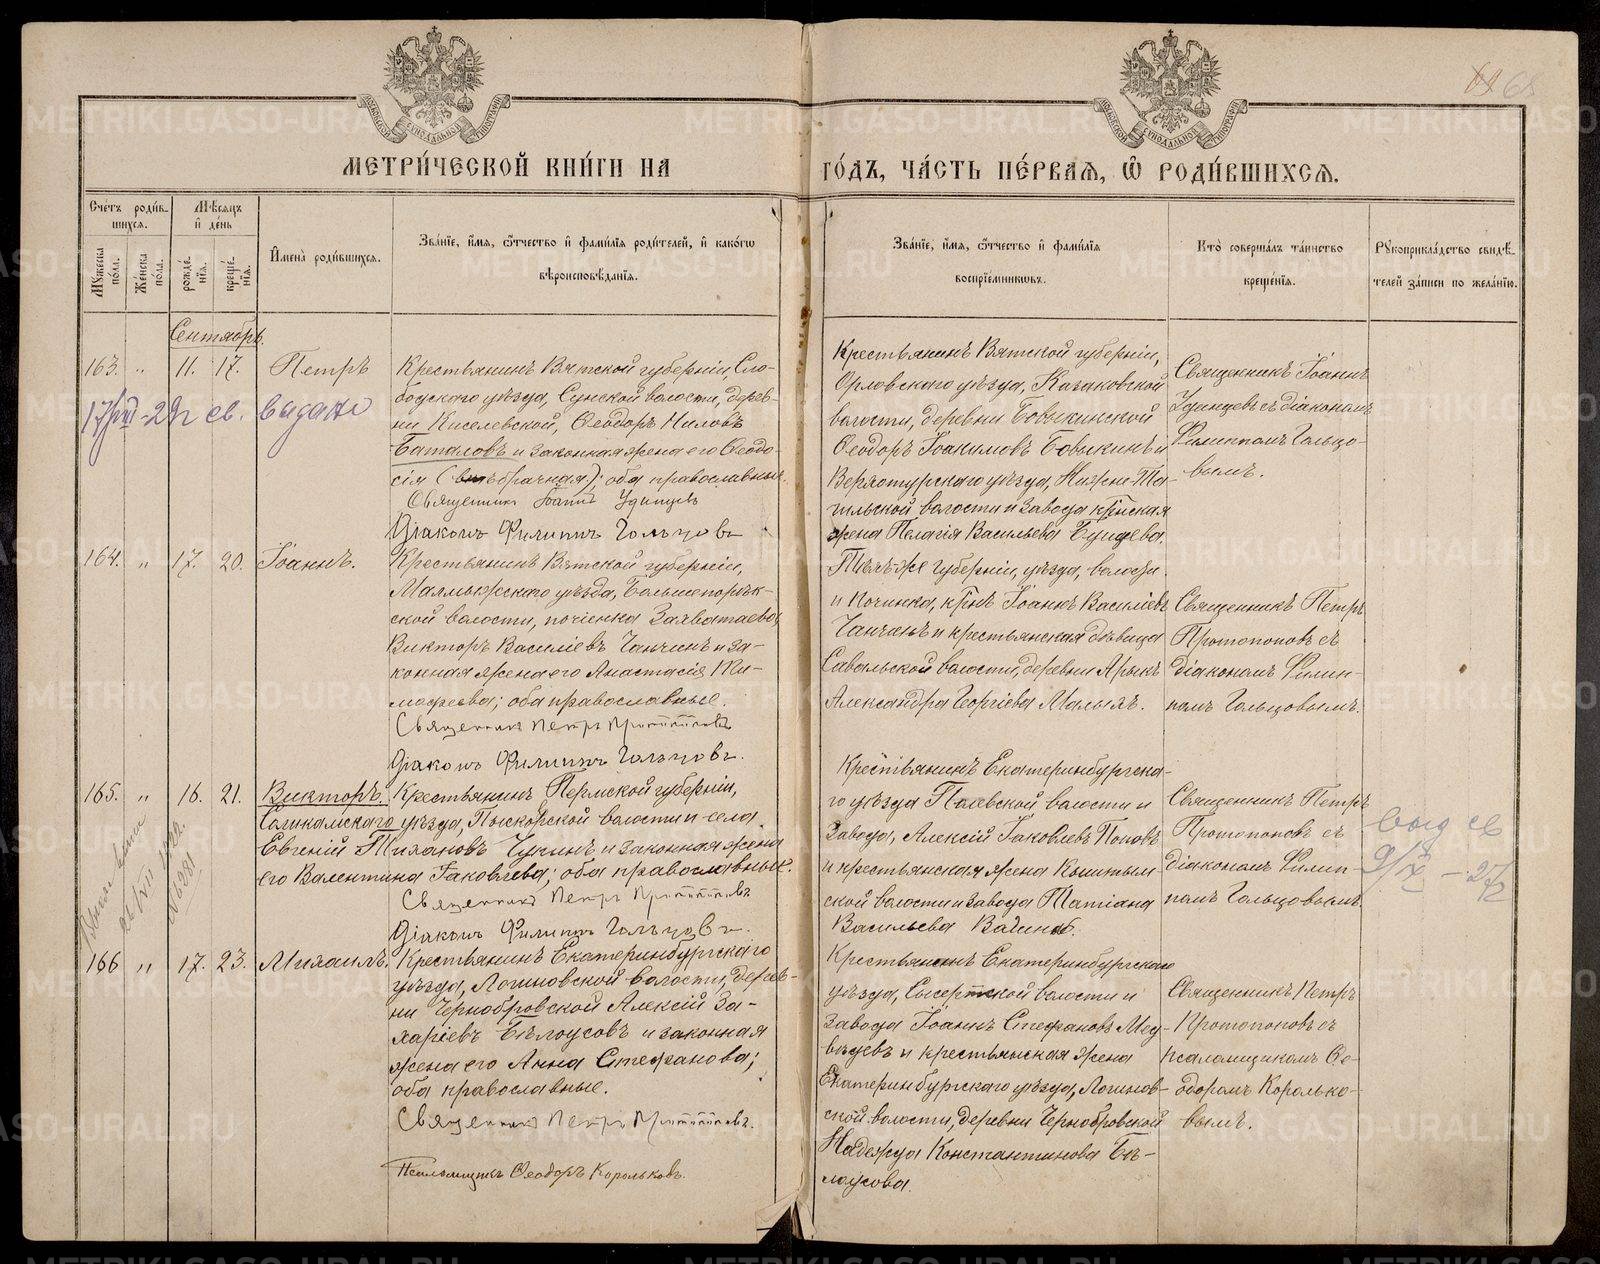 МЕТРИ́ЧЕСКОЙ КНИ́ГИ НА
ГО́ДЪ, ЧА́СТЬ ПЕ́РВАѦ, Ѡ҆ РОДИ́ВШИХСѦ.
Сче́тъ роди́в-
шихсѧ.
Мѣ́сѧцъ
и҆ де́нь
Мꙋ́жеска
по́ла.
Же́нска
по́ла.
рожде́-
нїѧ.
креще́-
нїѧ.
И҆мена̀ роди́вшихсѧ.
Зва́нїе, и҆́мѧ, ѻ҆́тчество и҆ фами́лїѧ роди́телей, и҆ како́гѡ
вѣроисповѣ́данїѧ.
Зва́нїе, и҆́мѧ, ѻ҆́тчество и҆ фами́лїѧ
воспрїе́мникѡвъ.
Кто̀ соверша́лъ та́инство
креще́нїѧ.
Рꙋкоприкла́дство свидѣ́-
телей за́писи по жела́нїю.
68
Сентябрь.
163. " 11. 17. Петръ
Крестьянинъ Вятской губерніи, Сло-
бодскаго уѣзда, Сунской волости, дерев-
ни Киселевской, Ѳеодоръ Ниловъ
Баталовъ и законная жена его Ѳеодо-
сія (вторбрачная); оба православные.
Священникъ Іоаннъ Удинцевъ
Діаконъ Филиппъ Гольцовъ
17/VIII-22 г св. выдано
Крестьянинъ Вятской губерніи,
Орловскаго уѣзда, Казаковской
волости, деревни Бовыкинской
Ѳеодоръ Іоакимовъ Бовыкинъ и
Верхотурскаго уѣзда, Нижне-Та-
гильской волости и завода крестьянская
жена Пелагія Васильева
Священникъ Іоаннъ
Удинцевъ съ діакономъ
Филиппомъ Гольцо-
вымъ.
164. " 17. 20. Іоаннъ.
Крестьянинъ Вятской губерніи,
Малмыжскаго уѣзда, Большепорек-
ской волости, починка Захватаева,
Викторъ Василіевъ Чанчинъ и за-
конная жена его Анастасія Ти-
мофеева; оба православные.
Священникъ Петръ Протопоповъ
Діаконъ Филиппъ Гольцовъ.
Тѣхъ-же губерніи, уѣзда, волости
и починка, кр-нъ Іоаннъ Василіевъ
Чанчинъ и крестьянская дѣвица
Савальской волости, деревни Арыкъ
Александра Георгіева Малыхъ.
Священникъ Петръ
Протопоповъ съ
діакономъ Филип-
помъ Гольцовымъ.
165. " 16. 21. Викторъ.
Крестьянинъ Пермской губерніи,
Соликамскаго уѣзда, Пыскорской волости и села
Евгеній Тихановъ Чукинъ и законная жена
его Валентина Іаковлева; оба православные.
Священникъ Петръ Протопоповъ
Діаконъ Филиппъ Гольцовъ.
Крестьянинъ Екатеринбургска-
го уѣзда Полевской волости и
завода, Алексій Іаковлевъ Поповъ
и крестьянская жена Кыштым-
ской волости и завода Татіана
Васильева
Священникъ Петръ
Протопоповъ съ
діакономъ Филип-
помъ Гольцовымъ.
выд св
9/X - 27 г
166 " 17. 23. Михаилъ.
Крестьянинъ Екатеринбургскаго
уѣзда, Логиновской волости, дерев-
ни Чернобровской Алексій За-
харіевъ Бѣлоусовъ и законная
жена его Анна Стефанова;
оба православные.
Священникъ Петръ Протопоповъ.
Псаломщикъ Ѳеодоръ Корольковъ.
Крестьянинъ Екатеринбургскаго
уѣзда, Сысертской волости и
завода Іоаннъ Стефановъ Мед-
вѣдевъ и крестьянская жена
Екатеринбургскаго уѣзда, Логинов-
ской волости, деревни Чернобровской
Надежда Константинова Бѣ-
лоусова.
Священникъ Петръ
Протопоповъ съ
псаломщикомъ Ѳе-
одоромъ Королько-
вымъ.
METRIKI.GASO-URAL.RU